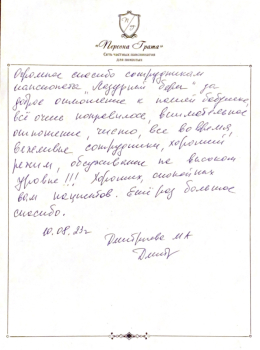 «Персона Грата»
сеть частных пансионатов
для пожилых
Огромное спасибо сотрудникам
пансионата "Лазурный берег" за
доброе отношение к нашей бабушке,
всё очень понравилось, внимательное
отношение, чисто, все во время,
вежливые сотрудники, хороший
режим, обслуживание на высоком
уровне!!! Хороших, спокойных
вам пациентов. Ещё раз большое
спасибо.
10.08.23г
Дмитриева МА
Дмит